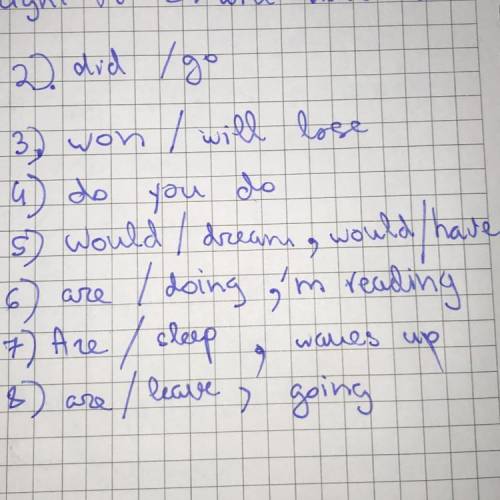 2). did / go
3) won / will lose
4) do you do
5) would / dream, would / have
6) are / doing, 'm reading
7) Are / sleep, wakes up
8) are / leave, going